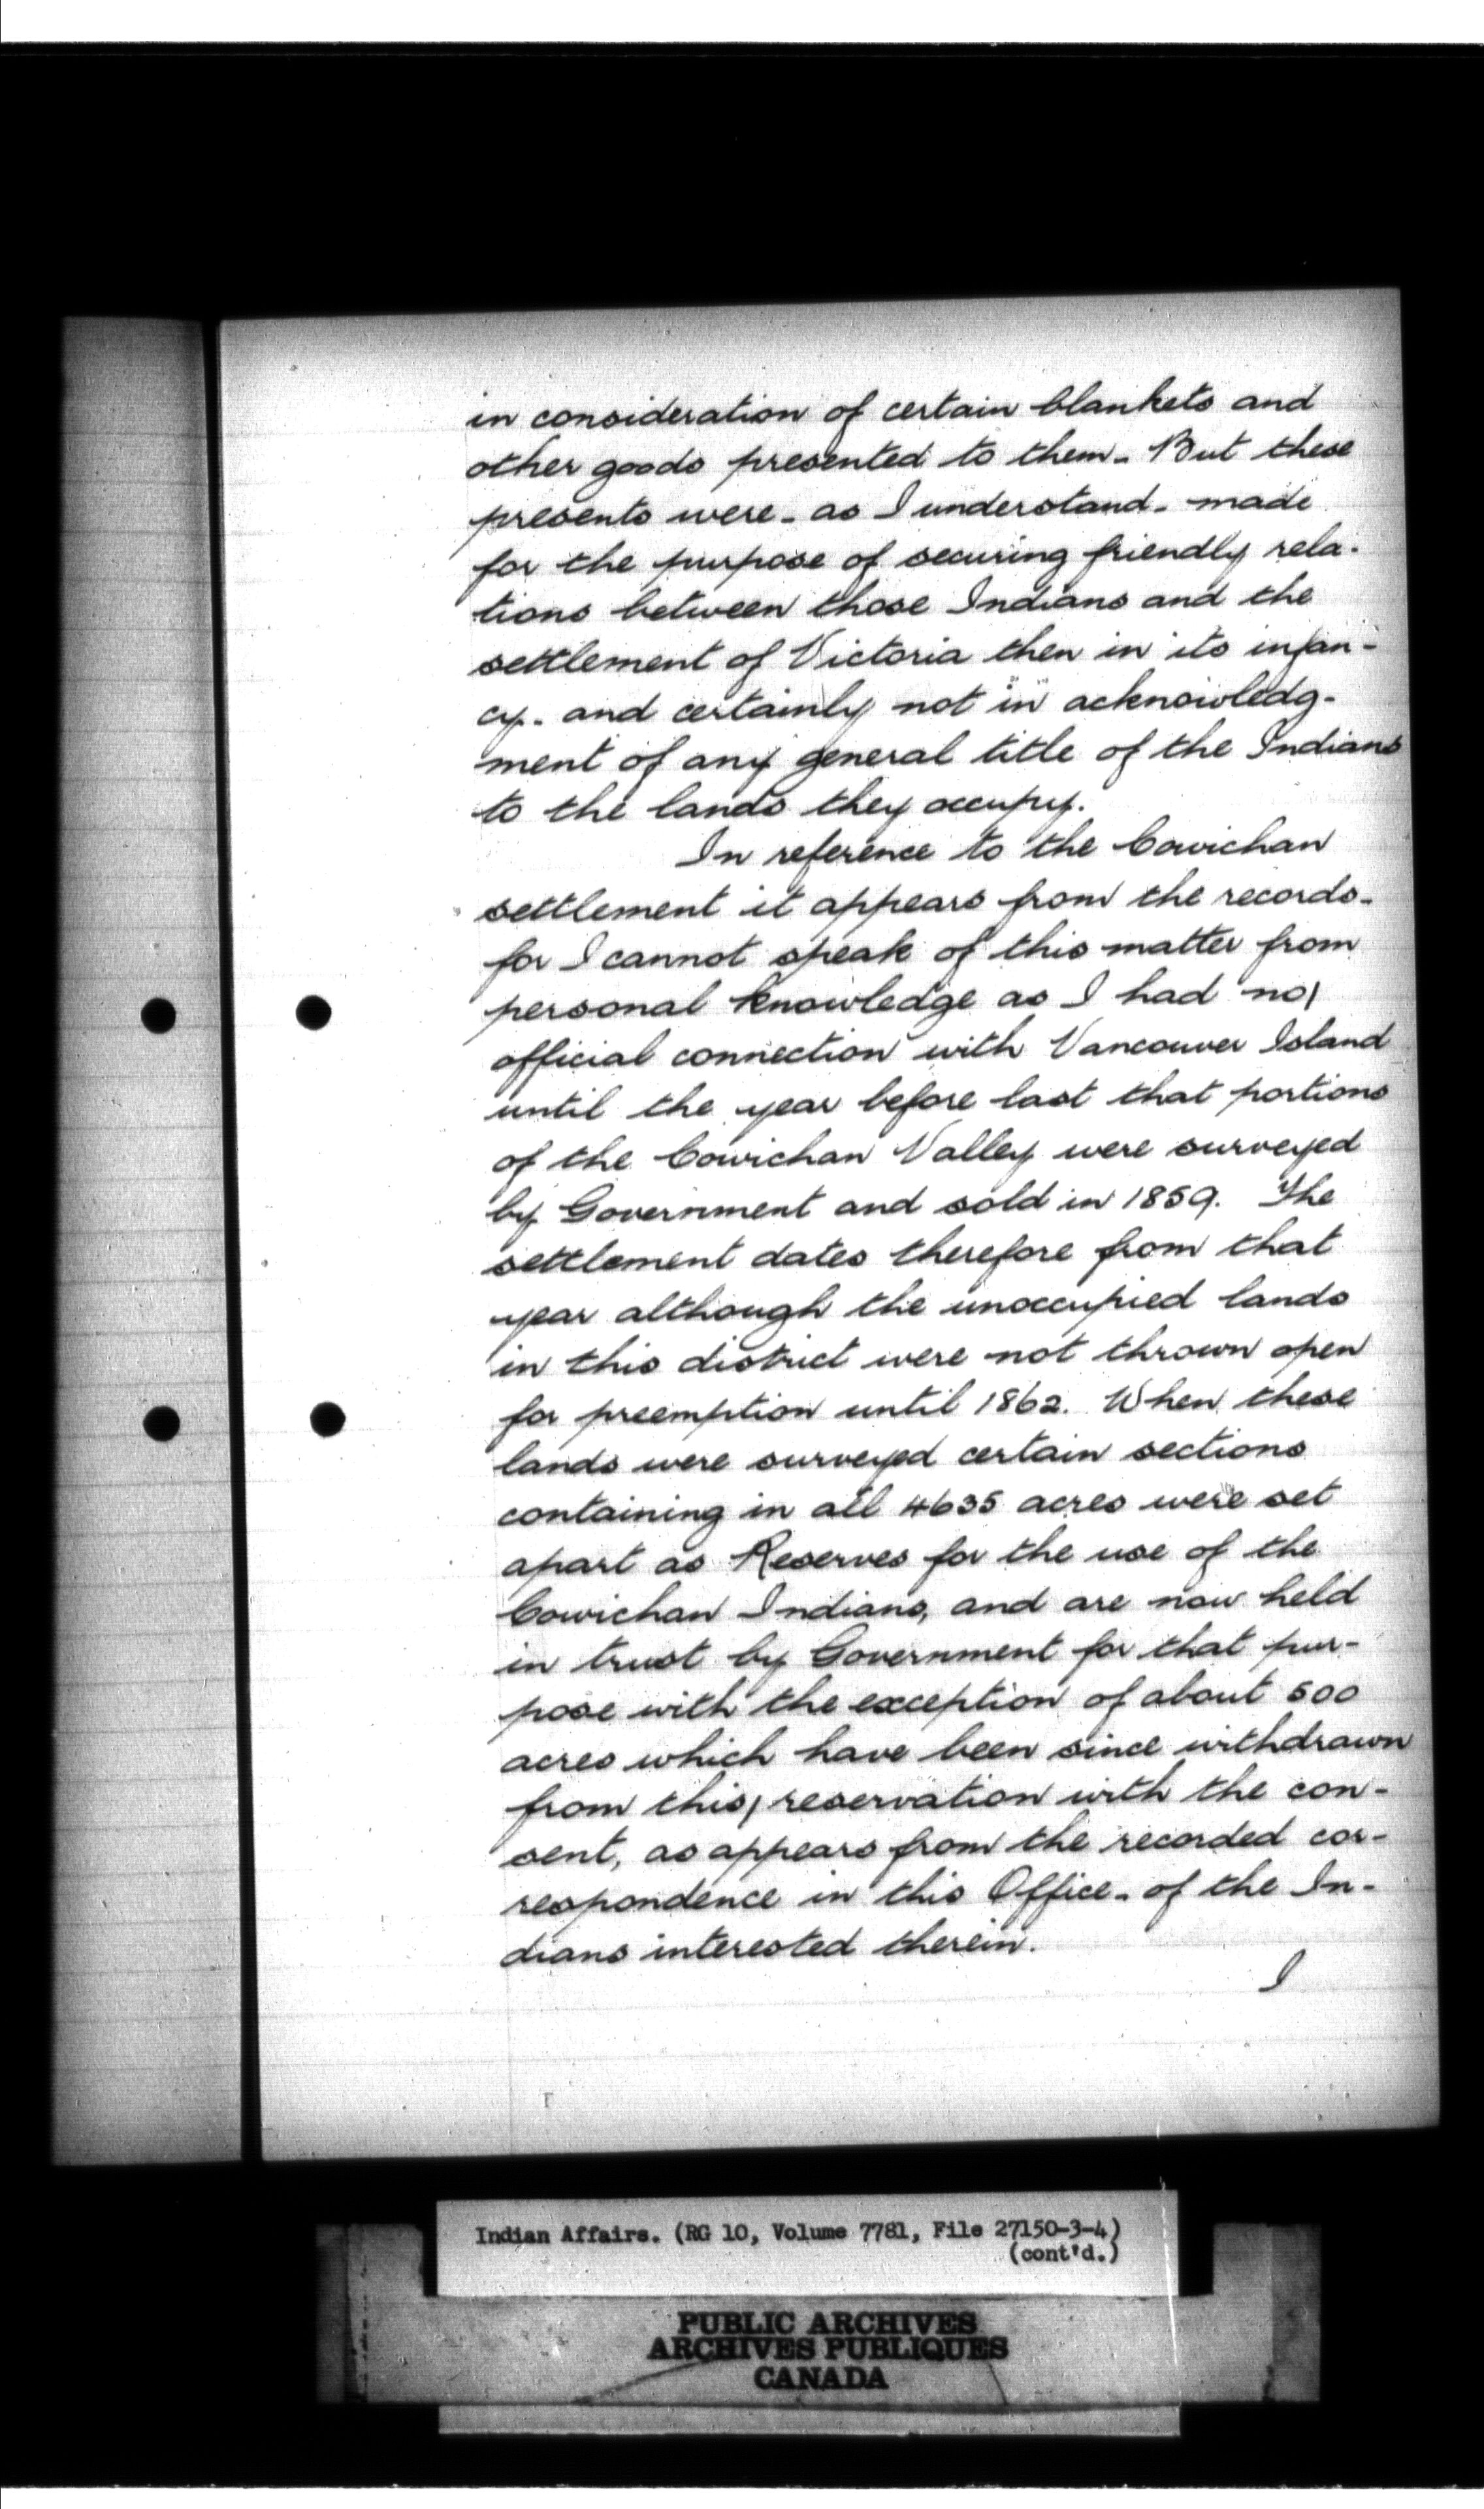 in consideration of certain blankets and
other goods presented to them - But these
presents were - as I understand - made
for the purpose of securing friendly rela-
tions between those Indians and the
settlement of Victoria then in its infan-
cy - and certainly not in acknowledg-
ment of any general title of the Indians
to the lands they occupy.
In reference to the Cowichan
settlement it appears from the records -
for I cannot speak of this matter from
personal knowledge as I had no
official connection with Vancouver Island
until the year before last that portions
of the Cowichan Valley were surveyed
by Government and sold in 1859. The
settlement dates therefore from that
year although the unoccupied lands
in this district were not thrown open
for preemption until 1862. When these
lands were surveyed certain sections
containing in all 4635 acres were set
apart as Reserves for the use of the
Cowichan Indians, and are now held
in trust by Government for that pur-
pose with the exception of about 500
acres which have been since withdrawn
from this, reservation with the con-
sent, as appears from the recorded cor-
respondence in this Office - of the In-
dians interested therein.
I
Indian Affairs. (RG 10, Volume 7781, File 27150-3-4)
(cont'd.)
PUBLIC ARCHIVES
ARCHIVES PUBLIQUES
CANADA